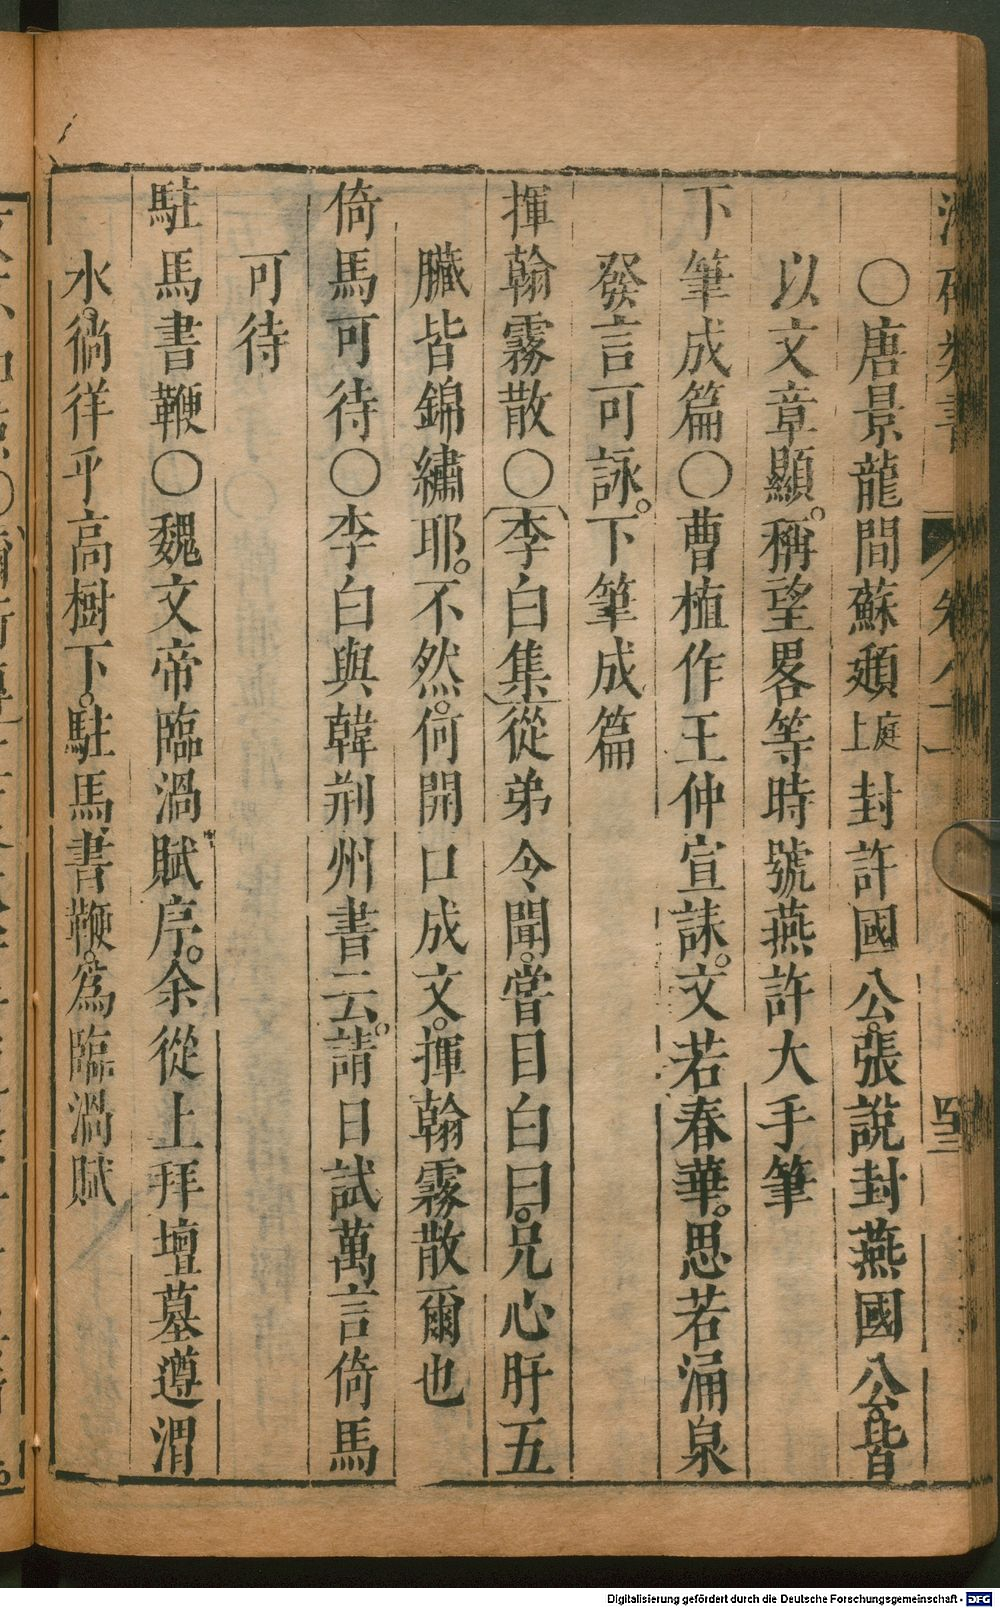 ○唐景龍間蘇頲庭上封許國公。張說封燕國公。皆
以文章顯。稱望畧等時號燕許大手筆
下筆成篇○曹植作王仲宣誄。文若春華。思若涌泉
發言可詠。下筆成篇
揮翰霧散○李白集從弟令聞。嘗目白曰。兄心肝五
臟皆錦繡耶。不然。何開口成文。揮翰霧散爾也
倚馬可待○李白與韓荆州書云。請日試萬言倚馬
可待
駐馬書鞭○魏文帝臨渦賦序。余從上拜壇墓遵渭
水。徜徉乎高樹下。駐馬書鞭。為臨渦賦
四三
Digitalisierung gefördert durch die Deutsche Forschungsgemeinschaft - DFG